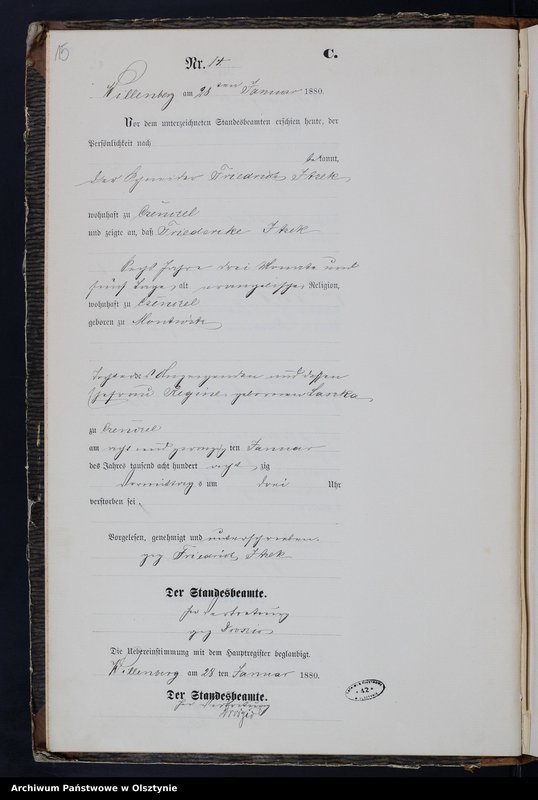 C.
Nr. 14
Willenberg am 28 ten Januar 1880.
Vor dem unterzeichneten Standesbeamten erschien heute, der
Persönlichkeit nach
bekannt,
der Friedrich Itzek
wohnhaft zu
und zeigte an, daß Friedericke Itzek
sechs Jahre drei Monate und
fünf Tage, alt evangelischer Religion,
wohnhaft zu
geboren zu
Tochter des Anzeigenden und dessen
Ehefrau Regine geborenen
zu
am acht und zwanzig ten Januar
des Jahres tausend acht hundert acht zig
Vormittag s um drei Uhr
verstorben sei.
Vorgelesen, genehmigt und unterschrieben.
gez Friedrich Itzek
Der Standesbeamte.
In Vertretung
gez
Die Uebereinstimmung mit dem Hauptregister beglaubigt.
Willenberg am 28 ten Januar 1880.
Der Standesbeamte.
In Vertretung
42
Archiwum Państwowe w Olsztynie